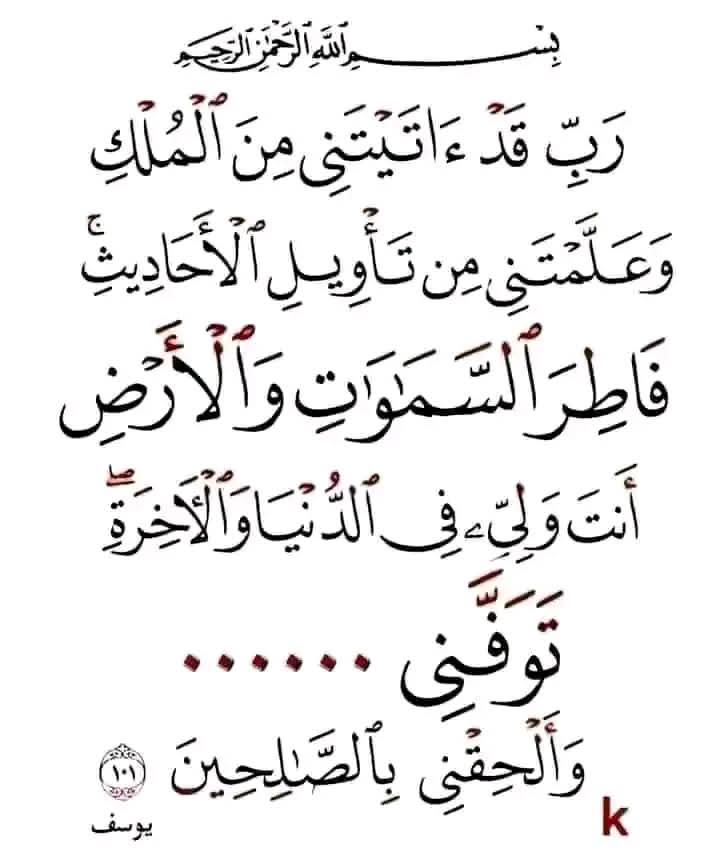 بِسْمِ اللَّهِ الرَّحْمَٰنِ الرَّحِيمِ
رَبِّ قَدْ ءَاتَيْتَنِى مِنَ ٱلْمُلْكِ
وَعَلَّمْتَنِى مِن تَأْوِيلِ ٱلْأَحَادِيثِ ۚ
فَاطِرَ ٱلسَّمَٰوَٰتِ وَٱلْأَرْضِ
أَنتَ وَلِىِّۦ فِى ٱلدُّنْيَا وَٱلْأَخِرَةِ ۖ
تَوَفَّنِى ......
وَأَلْحِقْنِى بِٱلصَّٰلِحِينَ ١٠١
يوسف
k